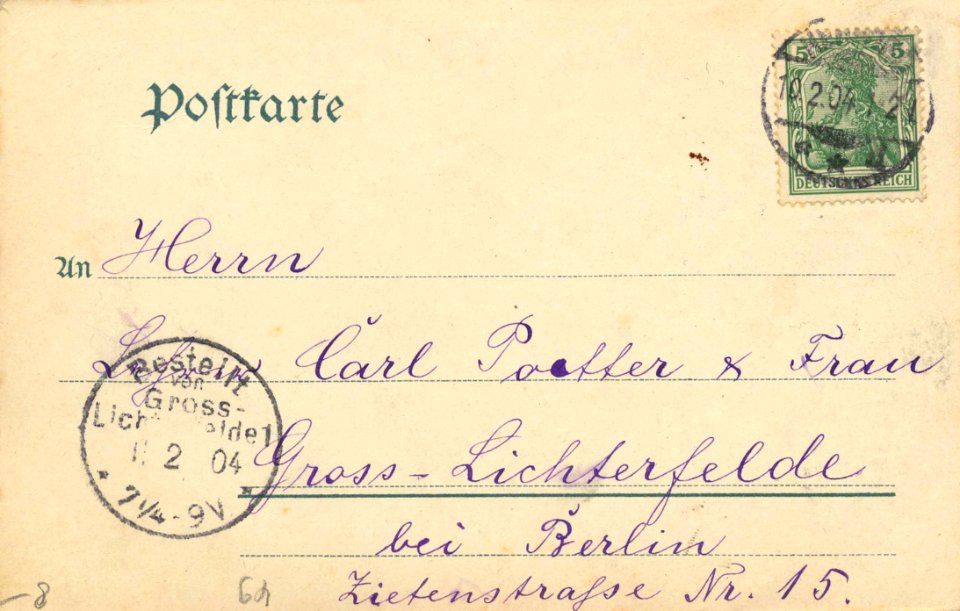 Postkarte
5 5
10.2.04
DEUTSCHES REICH
An Herrn
Carl Poetter & Frau
Gross-Lichterfelde
bei Berlin
Zietenstraße Nr. 15.
Bestellt
von
Gross-
Lichterfelde 1
2 04
7 1/4 - 9 V
-8